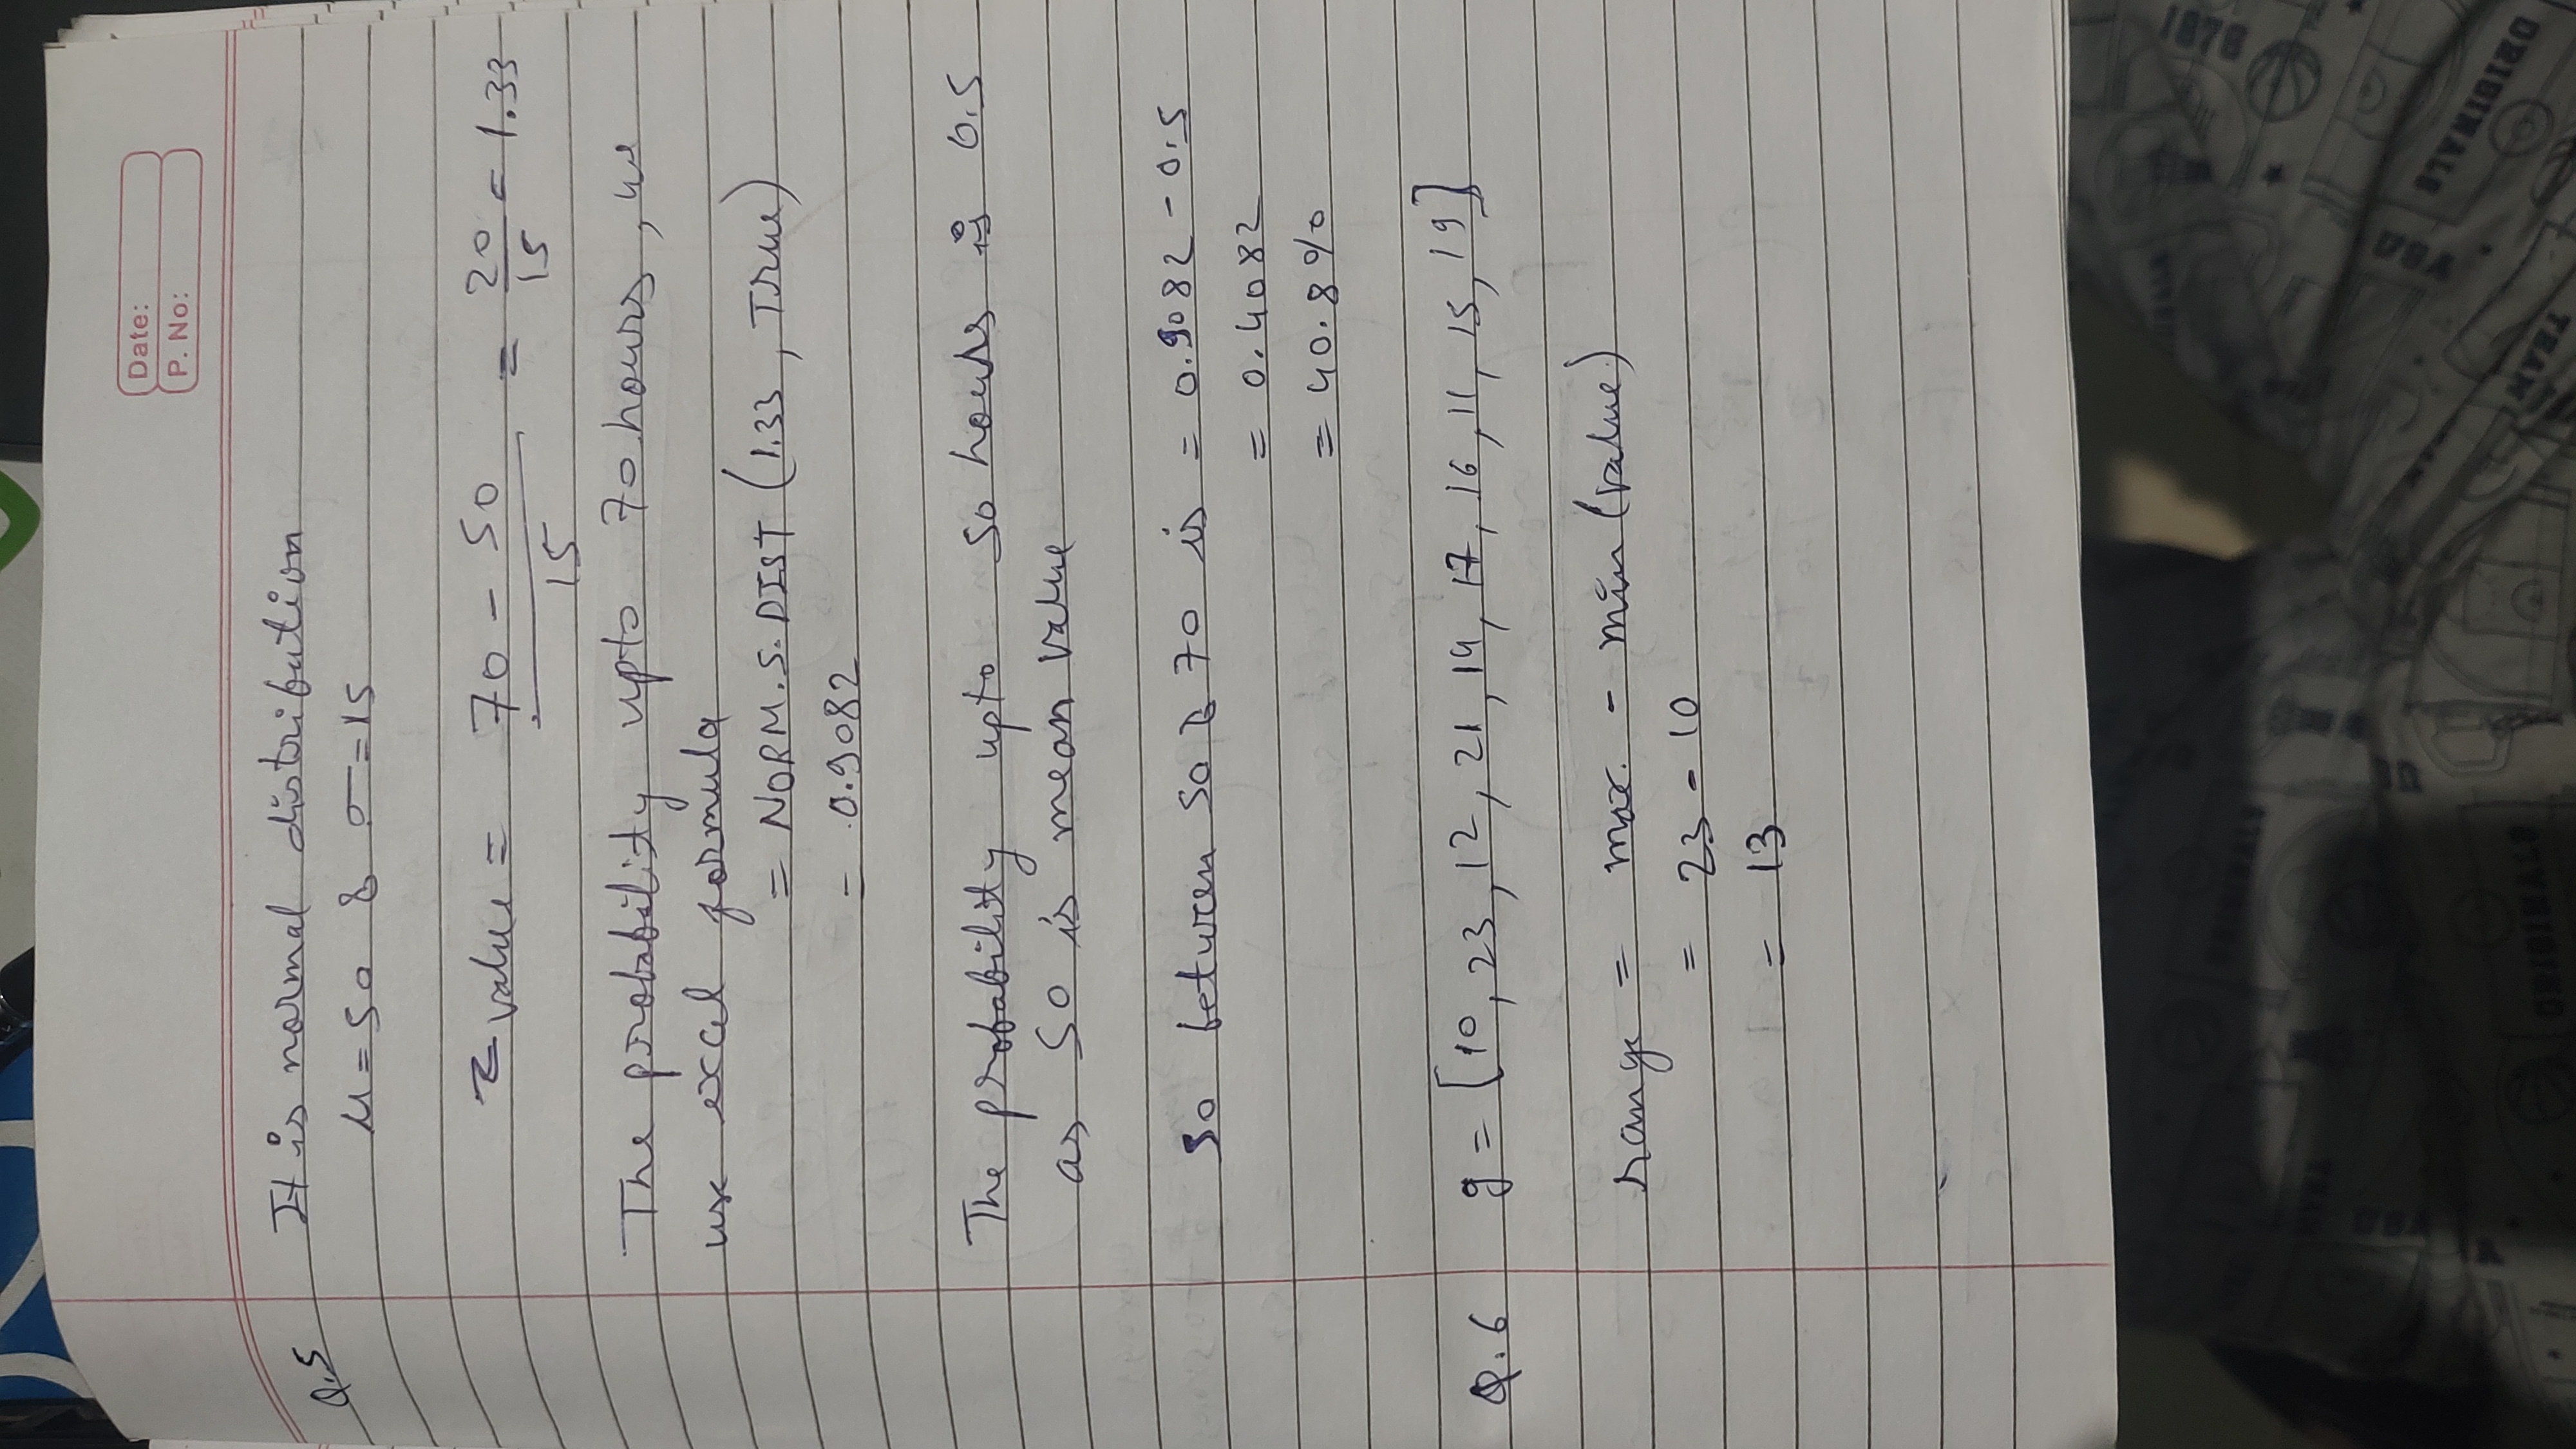 Date:
P. No:
Q.5 It is normal distribution
μ = 50 & σ = 15
z value = 70 - 50 / 15 = 20 / 15 = 1.33
The probability upto 70 hours, we
use excel formula
= NORM.S.DIST (1.33, True)
= 0.9082
The probability upto 50 hours is 0.5
as 50 is mean value
So between 50 & 70 is = 0.9082 - 0.5
= 0.4082
= 40.8%
Q.6 g = [10, 23, 12, 21, 14, 17, 16, 11, 15, 19]
range = max. - min (value)
= 23 - 10
= 13
1978
ORIGINALS
ORIGINALS
TEAM